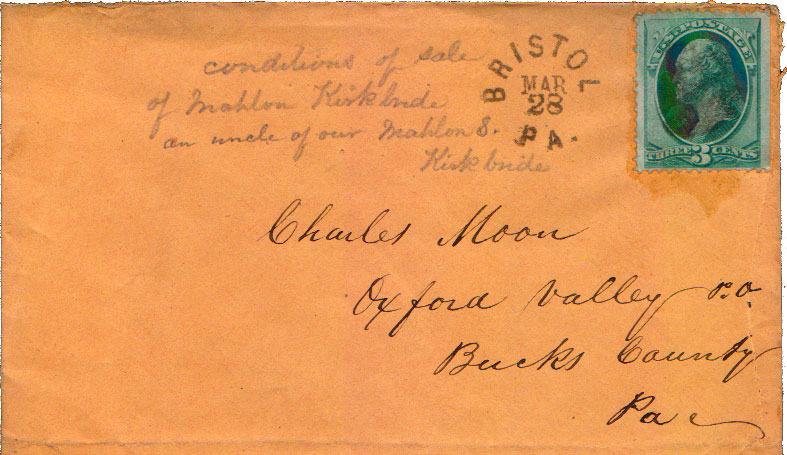 conditions of sale
of Mahlon Kirkbride
an uncle of our Mahlon S.
Kirkbride
BRISTOL
MAR
28
PA.
U.S. POSTAGE
THREE 3 CENTS
Charles Moon
Oxford Valley P.O.
Bucks County
Pa